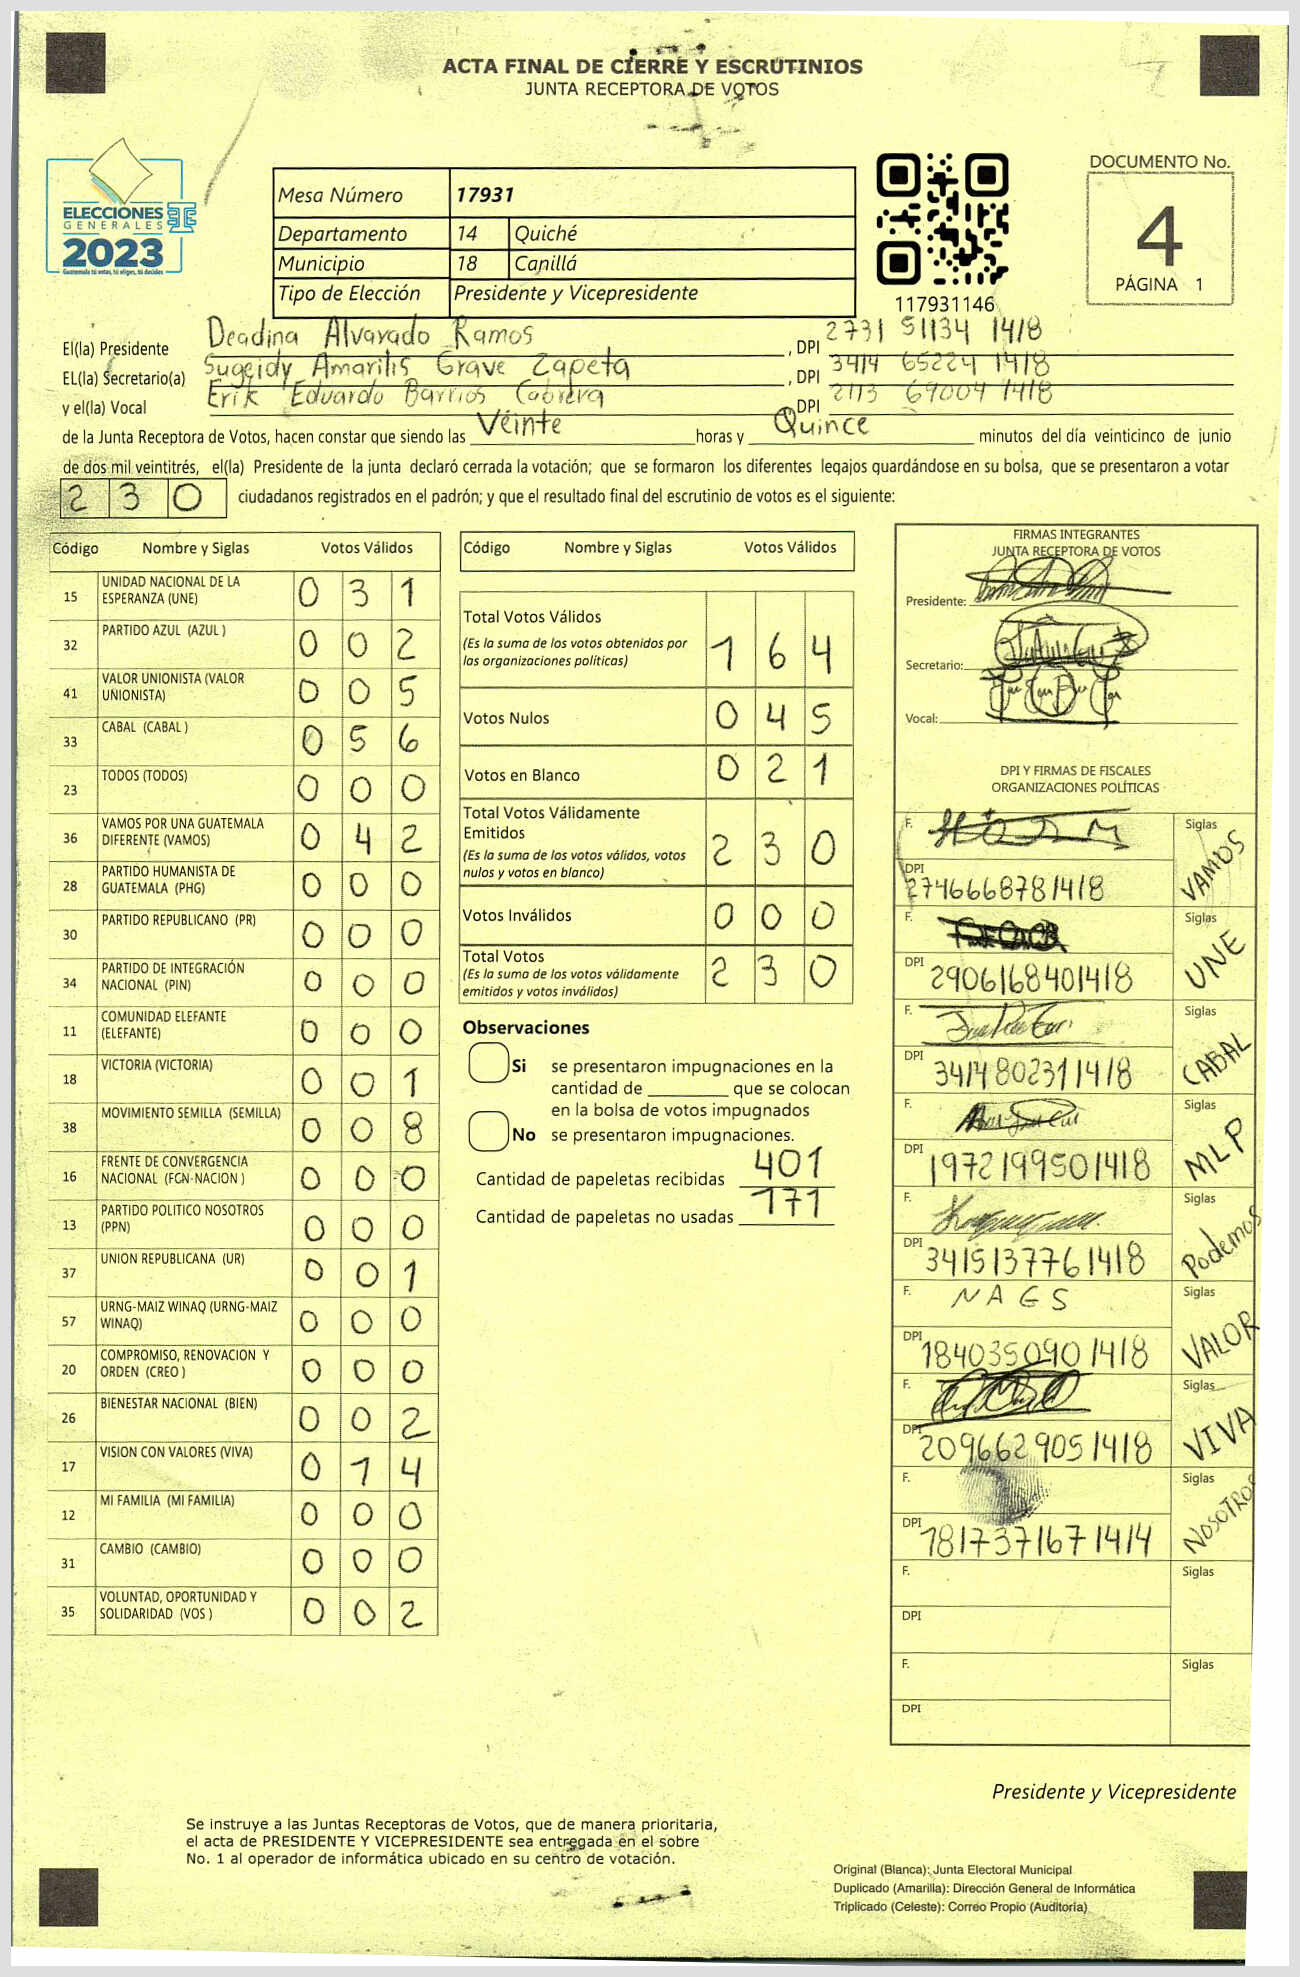 ACTA FINAL DE CIERRE Y ESCRUTINIOS
JUNTA RECEPTORA DE VOTOS
ELECCIONES
GENERALES
2023
Guatemala tú votas, tú eliges, tú decides
Mesa Número 17931
Departamento 14 Quiché
Municipio 18 Canillá
Tipo de Elección Presidente y Vicepresidente
117931146
DOCUMENTO No.
4
PÁGINA 1
El(la) Presidente Deadina Alvarado Ramos, DPI 2731 51134 1418
EL(la) Secretario(a) Sugeidy Amarilis Grave Zapeta, DPI 3414 65224 1418
y el(la) Vocal Erik Eduardo Barrios Cabrera, DPI 2113 69004 1418
de la Junta Receptora de Votos, hacen constar que siendo las Veinte horas y Quince minutos del día veinticinco de junio
de dos mil veintitrés, el(la) Presidente de la junta declaró cerrada la votación; que se formaron los diferentes legajos guardándose en su bolsa, que se presentaron a votar
230 ciudadanos registrados en el padrón; y que el resultado final del escrutinio de votos es el siguiente:
Código Nombre y Siglas Votos Válidos
15 UNIDAD NACIONAL DE LA ESPERANZA (UNE) 0 3 1
32 PARTIDO AZUL (AZUL ) 0 0 2
41 VALOR UNIONISTA (VALOR UNIONISTA) 0 0 5
33 CABAL (CABAL ) 0 5 6
23 TODOS (TODOS) 0 0 0
36 VAMOS POR UNA GUATEMALA DIFERENTE (VAMOS) 0 4 2
28 PARTIDO HUMANISTA DE GUATEMALA (PHG) 0 0 0
30 PARTIDO REPUBLICANO (PR) 0 0 0
34 PARTIDO DE INTEGRACIÓN NACIONAL (PIN) 0 0 0
11 COMUNIDAD ELEFANTE (ELEFANTE) 0 0 0
18 VICTORIA (VICTORIA) 0 0 1
38 MOVIMIENTO SEMILLA (SEMILLA) 0 0 8
16 FRENTE DE CONVERGENCIA NACIONAL (FCN-NACION ) 0 0 0
13 PARTIDO POLITICO NOSOTROS (PPN) 0 0 0
37 UNION REPUBLICANA (UR) 0 0 1
57 URNG-MAIZ WINAQ (URNG-MAIZ WINAQ) 0 0 0
20 COMPROMISO, RENOVACION Y ORDEN (CREO ) 0 0 0
26 BIENESTAR NACIONAL (BIEN) 0 0 2
17 VISION CON VALORES (VIVA) 0 1 4
12 MI FAMILIA (MI FAMILIA) 0 0 0
31 CAMBIO (CAMBIO) 0 0 0
35 VOLUNTAD, OPORTUNIDAD Y SOLIDARIDAD (VOS ) 0 0 2
Código Nombre y Siglas Votos Válidos
Total Votos Válidos
(Es la suma de los votos obtenidos por las organizaciones políticas) 1 6 4
Votos Nulos 0 4 5
Votos en Blanco 0 2 1
Total Votos Válidamente Emitidos
(Es la suma de los votos válidos, votos nulos y votos en blanco) 2 3 0
Votos Inválidos 0 0 0
Total Votos
(Es la suma de los votos válidamente emitidos y votos inválidos) 2 3 0
Observaciones
Si se presentaron impugnaciones en la
cantidad de que se colocan
en la bolsa de votos impugnados
No se presentaron impugnaciones.
Cantidad de papeletas recibidas 401
Cantidad de papeletas no usadas 171
FIRMAS INTEGRANTES
JUNTA RECEPTORA DE VOTOS
Presidente:
Secretario:
Vocal:
DPI Y FIRMAS DE FISCALES
ORGANIZACIONES POLÍTICAS
F. Siglas VAMOS
DPI 2746668781418
F. Siglas UNE
DPI 2906168401418
F. Siglas CABAL
DPI 3414802311418
F. Siglas MLP
DPI 1972199501418
F. Siglas Podemos
DPI 3415137761418
F. NAGS Siglas VALOR
DPI 1840350901418
F. Siglas VIVA
DPI 2096629051418
F. Siglas NOSOTROS
DPI 1817371671414
F. Siglas
DPI
F. Siglas
DPI
Presidente y Vicepresidente
Se instruye a las Juntas Receptoras de Votos, que de manera prioritaria,
el acta de PRESIDENTE Y VICEPRESIDENTE sea entregada en el sobre
No. 1 al operador de informática ubicado en su centro de votación.
Original (Blanca): Junta Electoral Municipal
Duplicado (Amarilla): Dirección General de Informática
Triplicado (Celeste): Correo Propio (Auditoría)